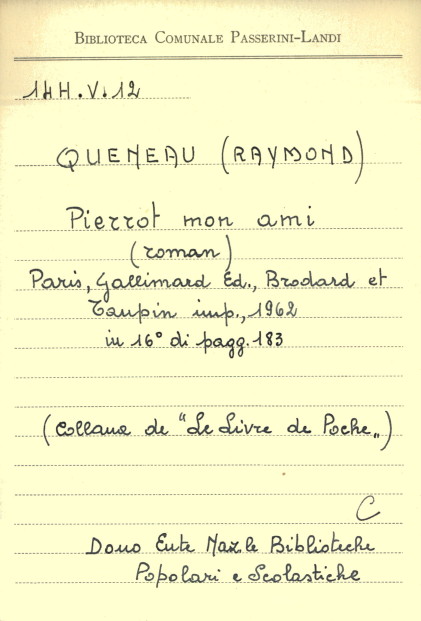 BIBLIOTECA COMUNALE PASSERINI-LANDI
14H.V.12
QUENEAU (RAYMOND)
Pierrot mon ami
(roman)
Paris, Gallimard Ed., Brodard et
Taupin imp., 1962
in 16° di pagg. 183
(Collana de "Le Livre de Poche„)
C
Dono Ente Naz.le Biblioteche
Popolari e Scolastiche